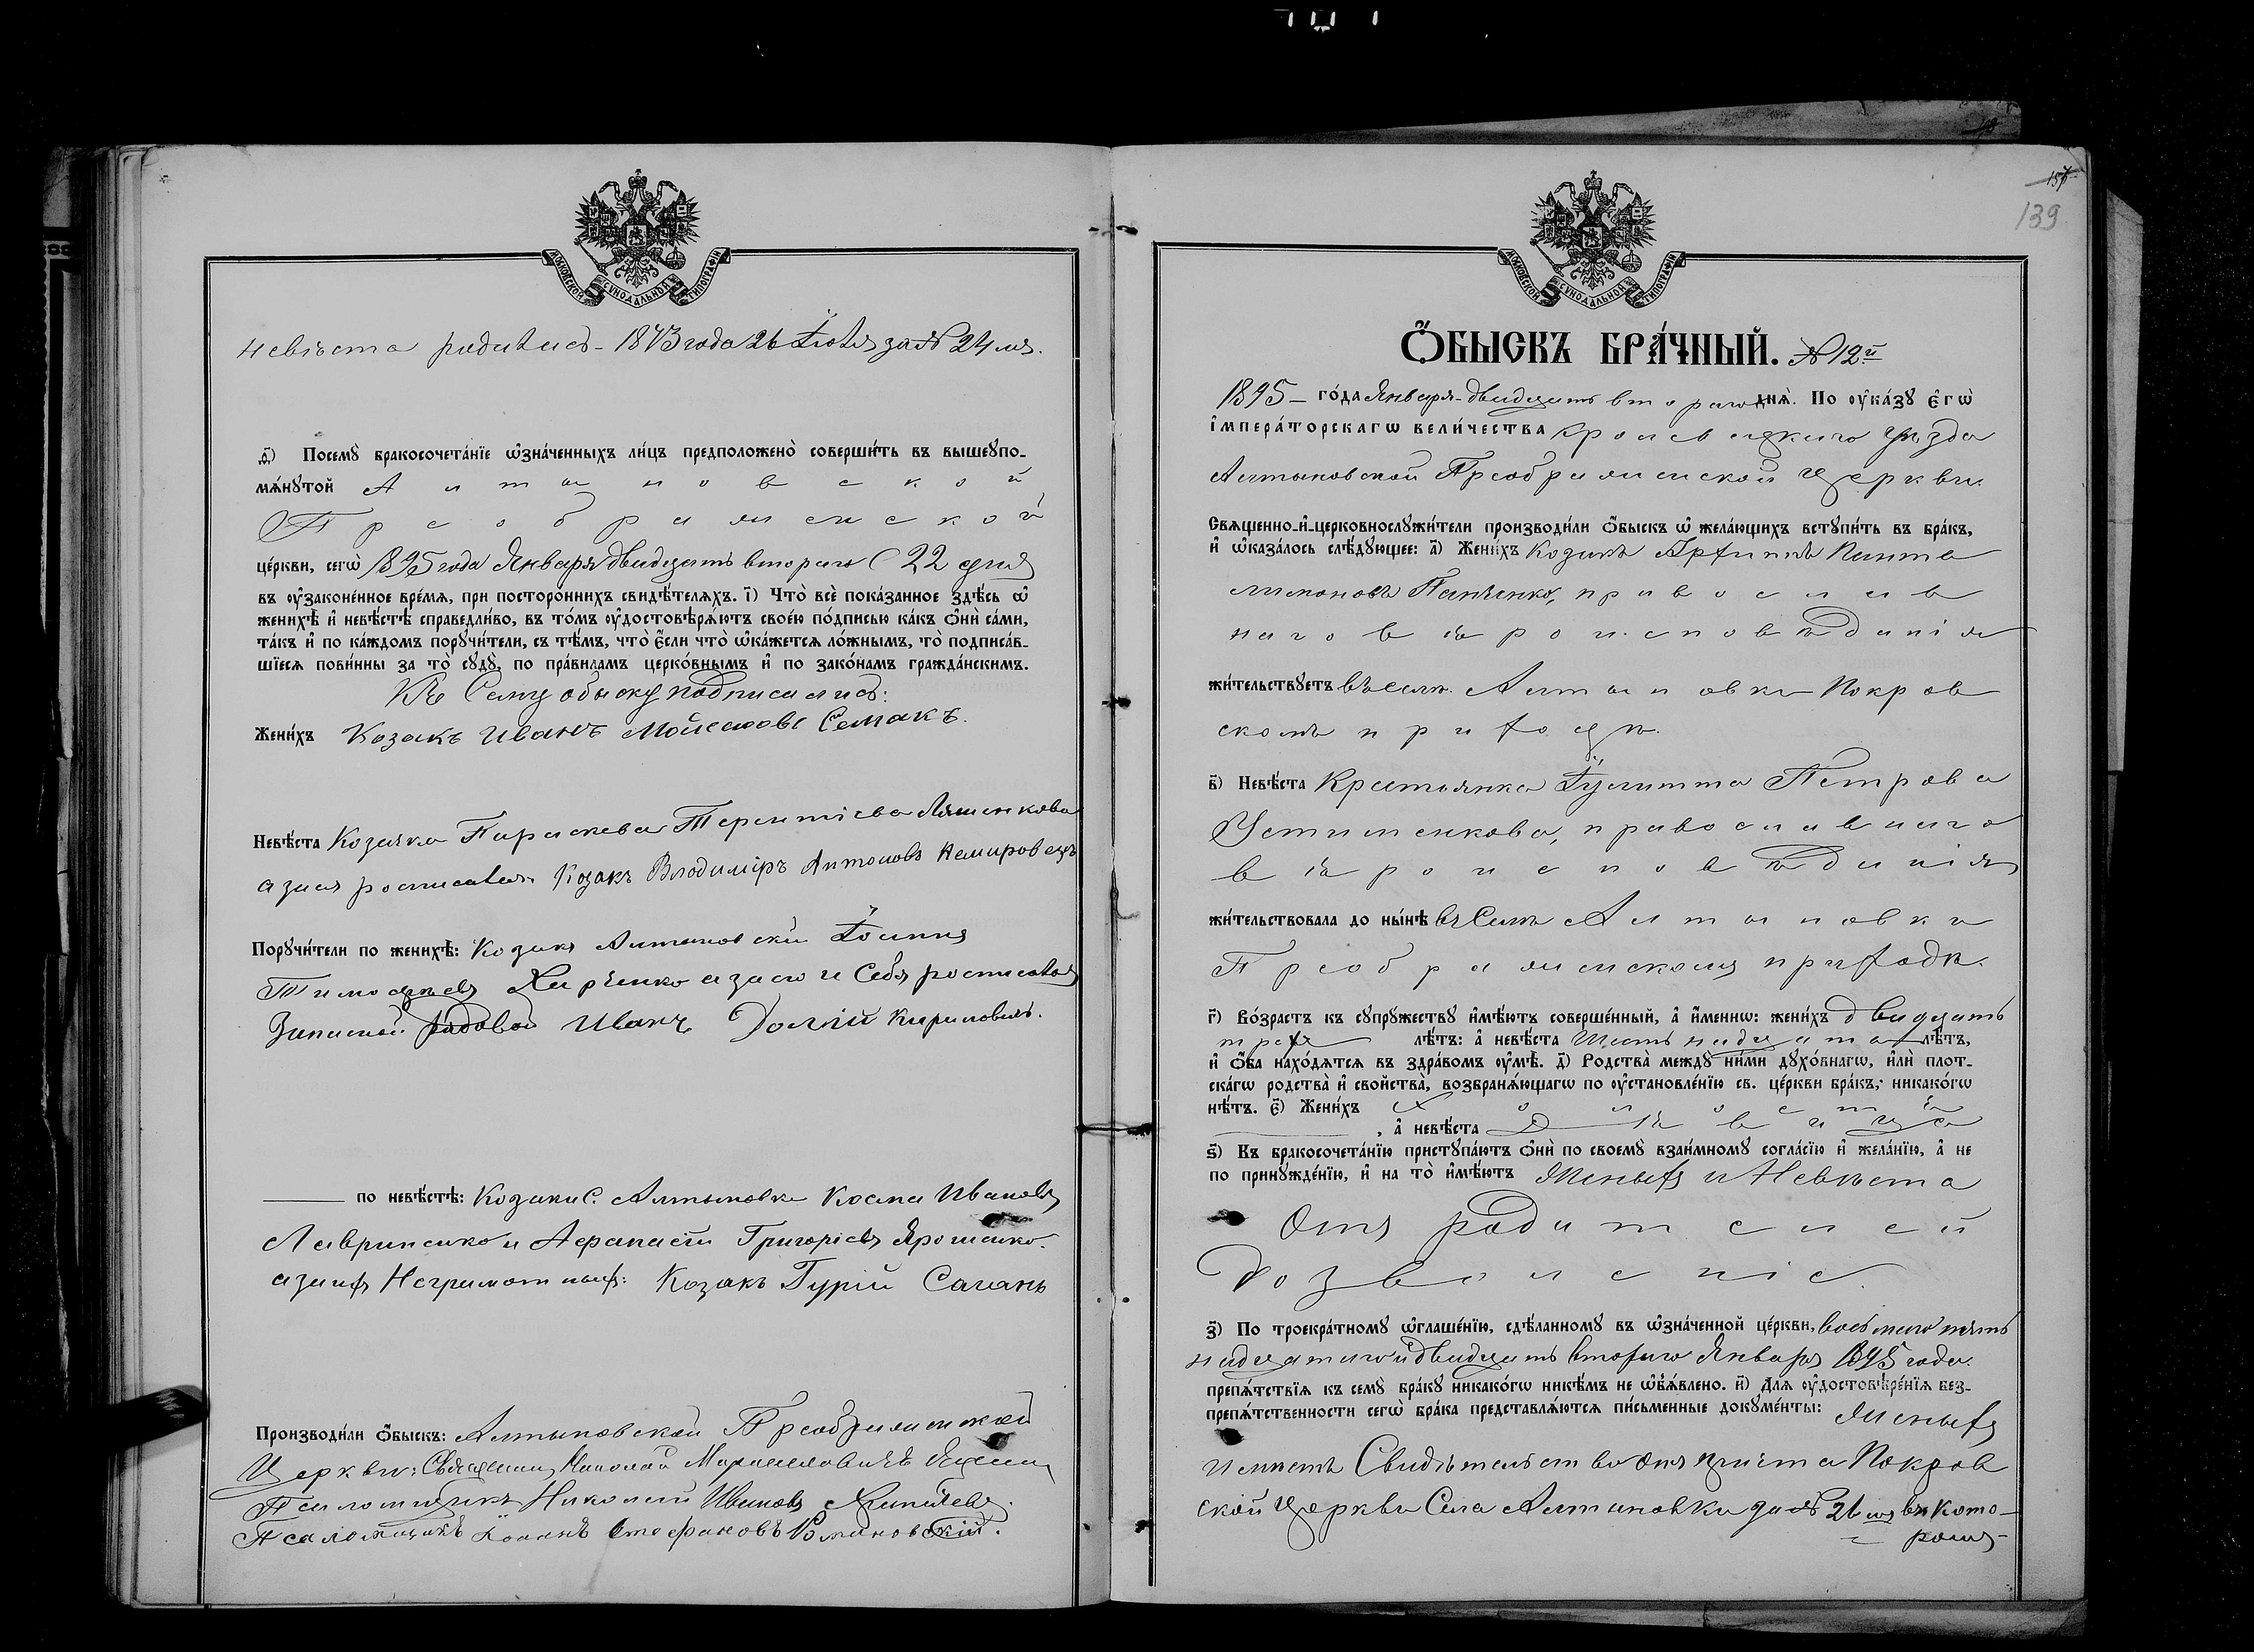 МОСКОВСКОЙ СѴНОДАЛЬНОЙ ТИПОГРАФІИ
невѣста родилась 1873 года 26 Іюля за № 24мъ.
д҃) Посемꙋ бракосочетаніе ѡзначенныхъ лицъ предположено совершить въ вышеꙋпо-
мянꙋтой Алтыновской
Преображенской
церкви, сегѡ 1895 года Января двадцать втораго (22 дня)
въ оузаконенное время, при постороннихъ свидѣтеляхъ. і҃) Что всѐ показанное здѣсь ѡ
женихѣ и невѣстѣ справедливо, въ томъ оудостовѣряютъ своею подписью какъ ѻни сами,
такъ и по каждомъ порꙋчители, съ тѣмъ, что єсли что ѡкажется ложнымъ, то подписав-
шіеся повинны за то сꙋдꙋ, по правиламъ церковнымъ и по законамъ гражданскимъ.
Къ Сему обыску подписались:
Женихъ Козакъ Иванъ Мойсеовъ Семакъ.
Невѣста Козачка Параскева Терентіева Ляшенкова
а за ея росписался Козакъ Владиміръ Антоновъ Немировецъ
Порꙋчители по женихѣ: Козакъ Алтыновскій Іоаннъ
Тимофѣевъ Харченко а за него и Себя росписался
Запасной рядовой Иванъ Долгій Кириловичъ.
по невѣстѣ: Козаки С. Алтыновки Косма Ивановъ
Лавриненко и Афанасій Григоріевъ Ярошенко.
а за ихъ Неграмотныхъ: Козакъ Гурій Саганъ
Производили ѻбыскъ: Алтыновской Преображенской
Церкви: Священникъ Николай
Псаломщикъ Николай Ивановъ
Псаломщикъ Іоаннъ Стефановъ Романовскій.
157
139
МОСКОВСКОЙ СѴНОДАЛЬНОЙ ТИПОГРАФІИ
Ѻбыскъ брачный. № 12й
1895 – года Января двадцать втораго дня. По оуказꙋ єгѡ
императорскагѡ величества Кролевецкаго Уѣзда
Алтыновской Преображенской Церкви.
Священно-и-церковнослꙋжители производили ѻбыскъ ѡ желающихъ встꙋпить въ бракъ,
и ѡказалось слѣдꙋющее: а҃) Женихъ Козакъ Архиппъ Панте
леимоновъ Панченко, православ
наго вѣроисповѣданія
жительствꙋетъ въ селѣ Алтыновки Покров
скомъ приходѣ.
в҃) Невѣста Крестьянка Іулитта Петрова
Устименкова, православнаго
вѣроисповѣданія
жительствовала до нынѣ въ Селѣ Алтыновки
Преображенскомъ приходѣ.
г҃) Возрастъ къ сꙋпрꙋжествꙋ имѣютъ совершенный, а именнѡ: женихъ двадцать
трехъ лѣтъ: а невѣста Шестьнадцати лѣтъ,
и ѻба находятся въ здравомъ оумѣ. д҃) Родства междꙋ ними дꙋховнагѡ, или плот-
скагѡ родства и свойства, возбраняющагѡ по оустановленію св. церкви бракъ, никакогѡ
нѣтъ. є҃) Женихъ Холостъ
, а невѣста Дѣвица
ѕ҃) Къ бракосочетанію пристꙋпаютъ ѻни по своемꙋ взаимномꙋ согласію и желанію, а не
по принꙋжденію, и на то имѣютъ Женихъ и Невѣста
Отъ родителей
дозволеніе.
з҃) По троекратномꙋ ѡглашенію, сдѣланномꙋ въ ѡзначенной церкви, восьмаго пять
надцатаго и двадцать втораго Января 1895 года.
препятствія къ семꙋ бракꙋ никакогѡ никѣмъ не ѡбъявлено. и҃) Для оудостовѣренія без-
препятственности сегѡ брака представляются письменные докꙋменты: Женихъ
имѣетъ Свидѣтельство отъ причта Покров
ской Церкви Села Алтыновки за № 21мъ въ кото-
ромъ